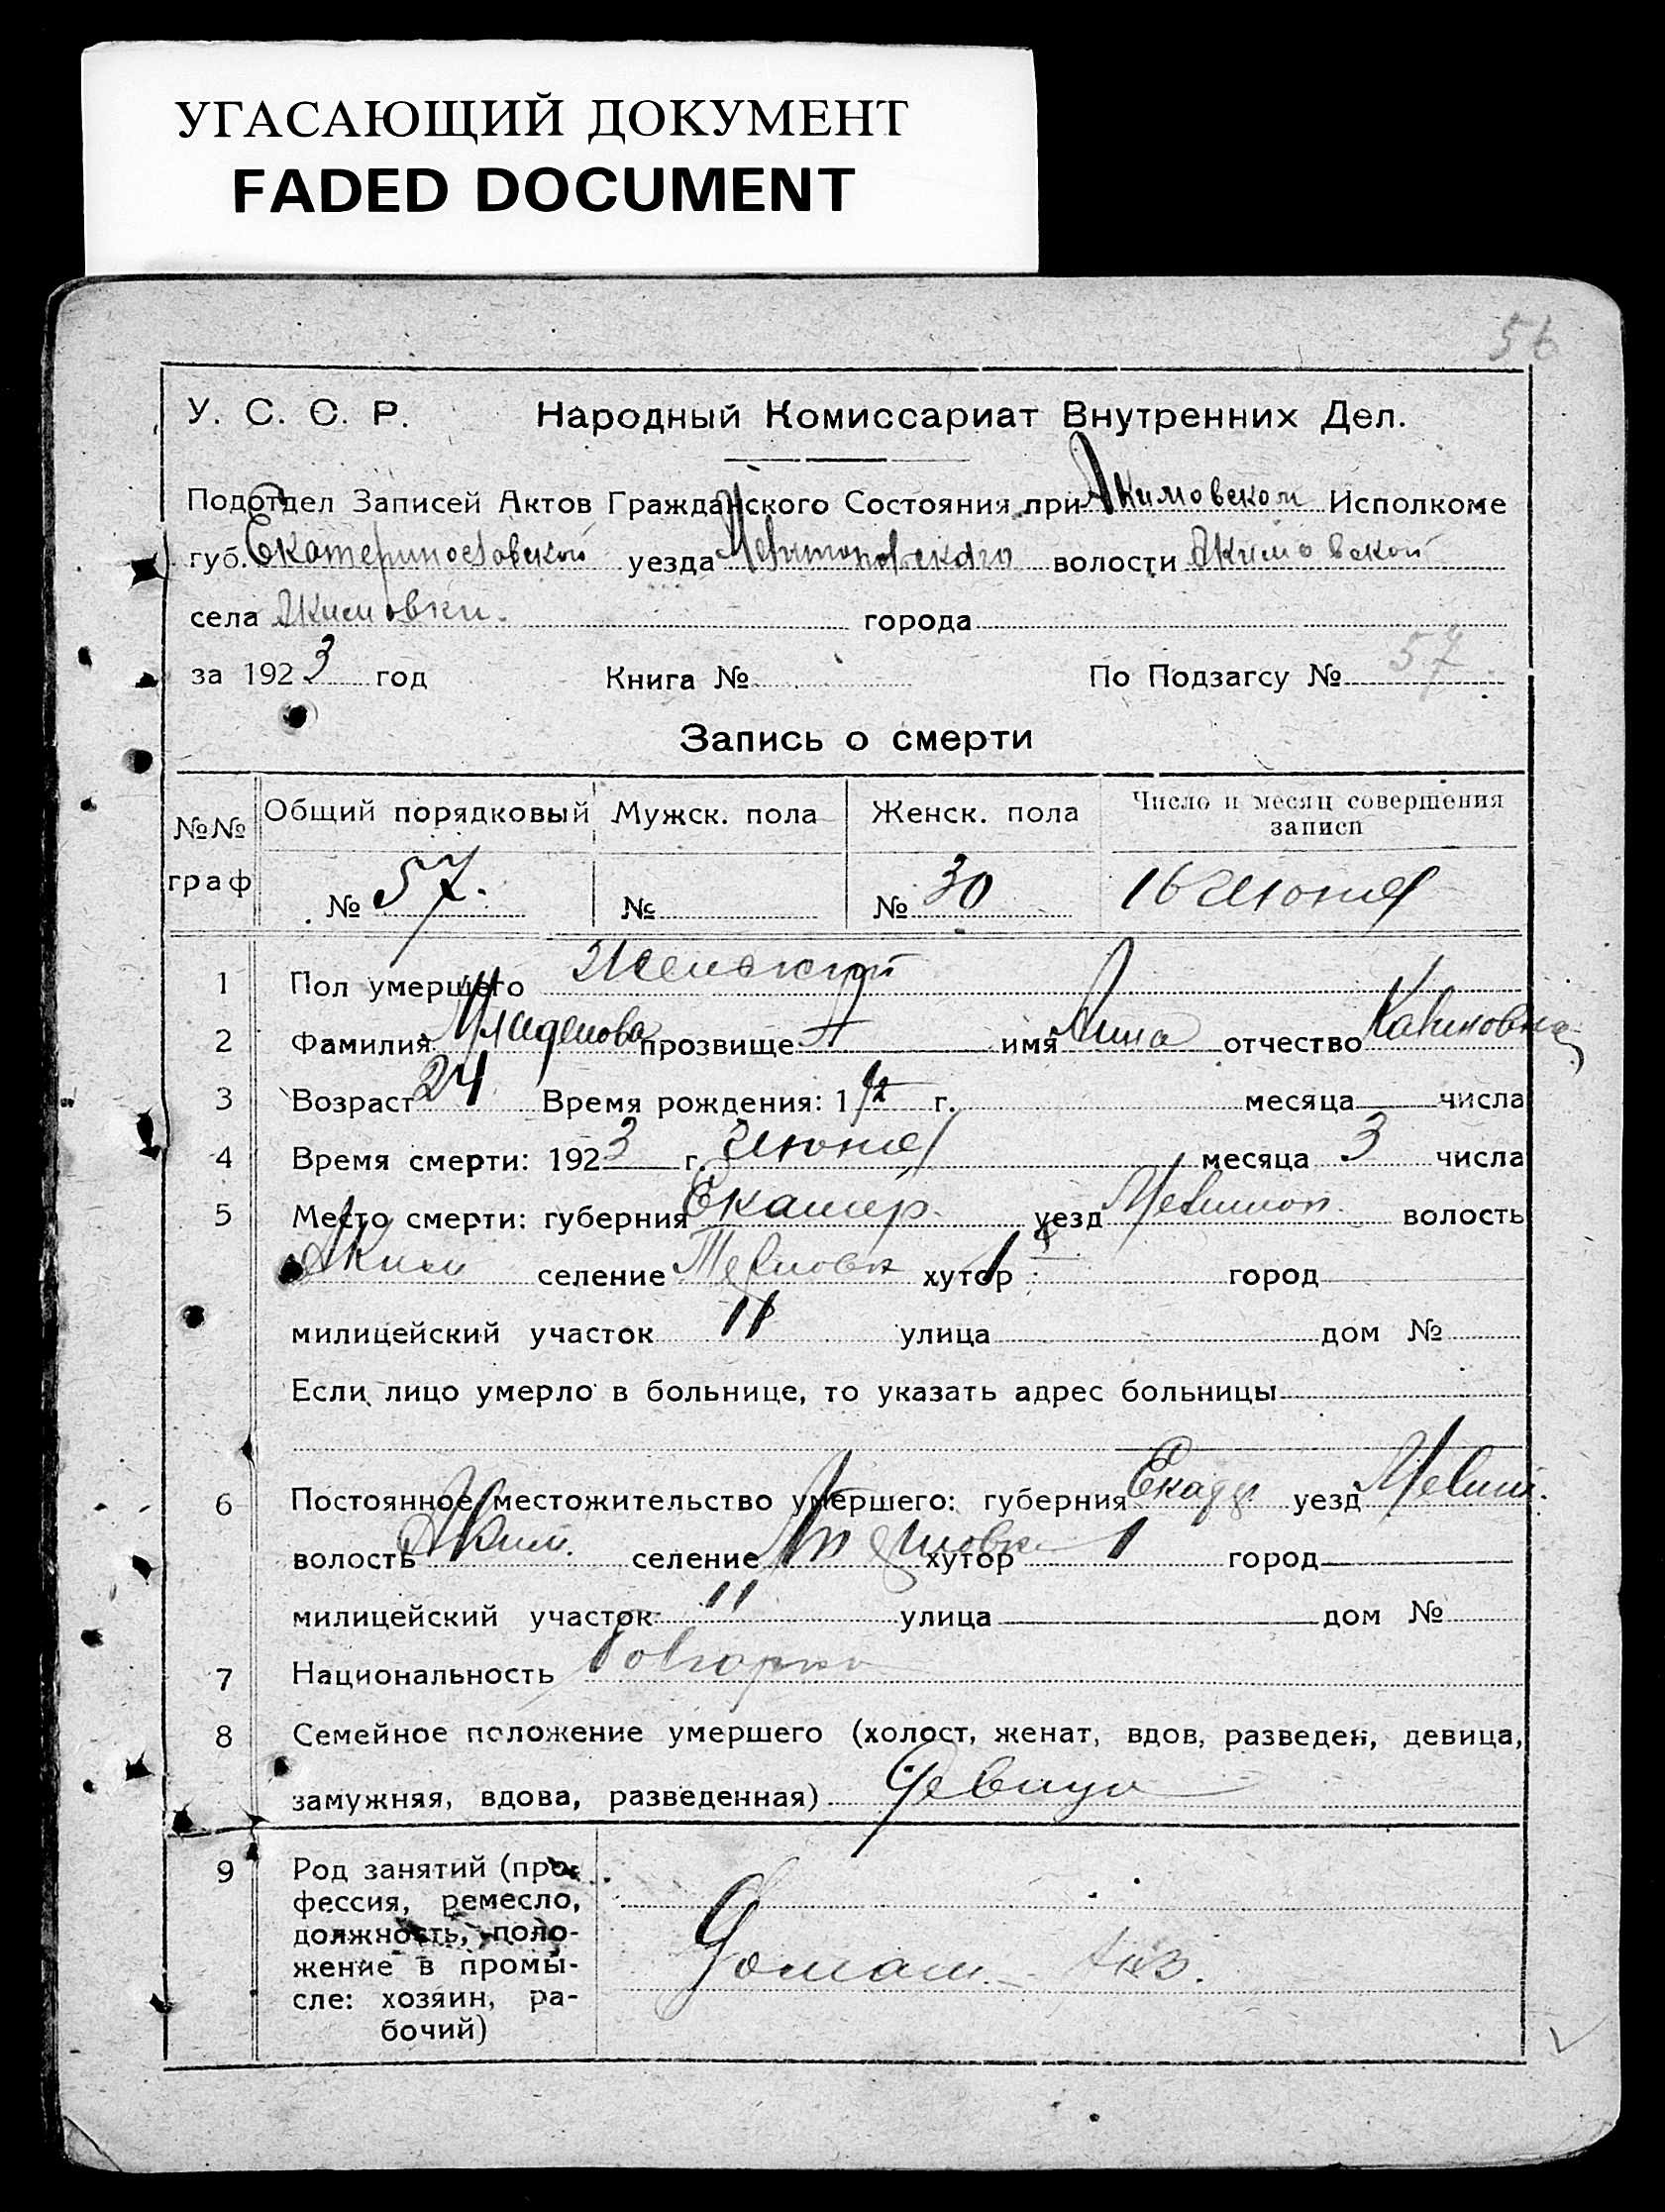 УГАСАЮЩИЙ ДОКУМЕНТ
FADED DOCUMENT
56
У. С. С. Р. Народный Комиссариат Внутренних Дел.
Подотдел Записей Актов Гражданского Состояния при Акимовском Исполкоме
губ. Екатеринославской уезда Мелитопольскаго волости Акимовской
села Акимовки. города
за 1923 год Книга № По Подзагсу № 57
Запись о смерти
№№ граф Общий порядковый Мужск. пола Женск. пола Число и месяц совершения записи
№ 57. № № 30 16 Июня
1 Пол умершего Женский
2 Фамилия Младенова прозвище имя Анна отчество
3 Возраст 24 Время рождения: 1 г. месяца числа
4 Время смерти: 1923 г. Июня месяца 3 числа
5 Место смерти: губерния Екатер. уезд Мелитоп. волость
Аким селение хутор город
милицейский участок 11 улица дом №
Если лицо умерло в больнице, то указать адрес больницы
6 Постоянное местожительство умершего: губерния уезд Мелит.
волость Аким. селение хутор город
милицейский участок 11 улица дом №
7 Национальность болгарка
8 Семейное положение умершего (холост, женат, вдов, разведен, девица,
замужняя, вдова, разведенная) девица
9 Род занятий (про-
фессия, ремесло,
должность, поло-
жение в промы-
сле: хозяин, ра-
бочий)
Домаш. хоз.